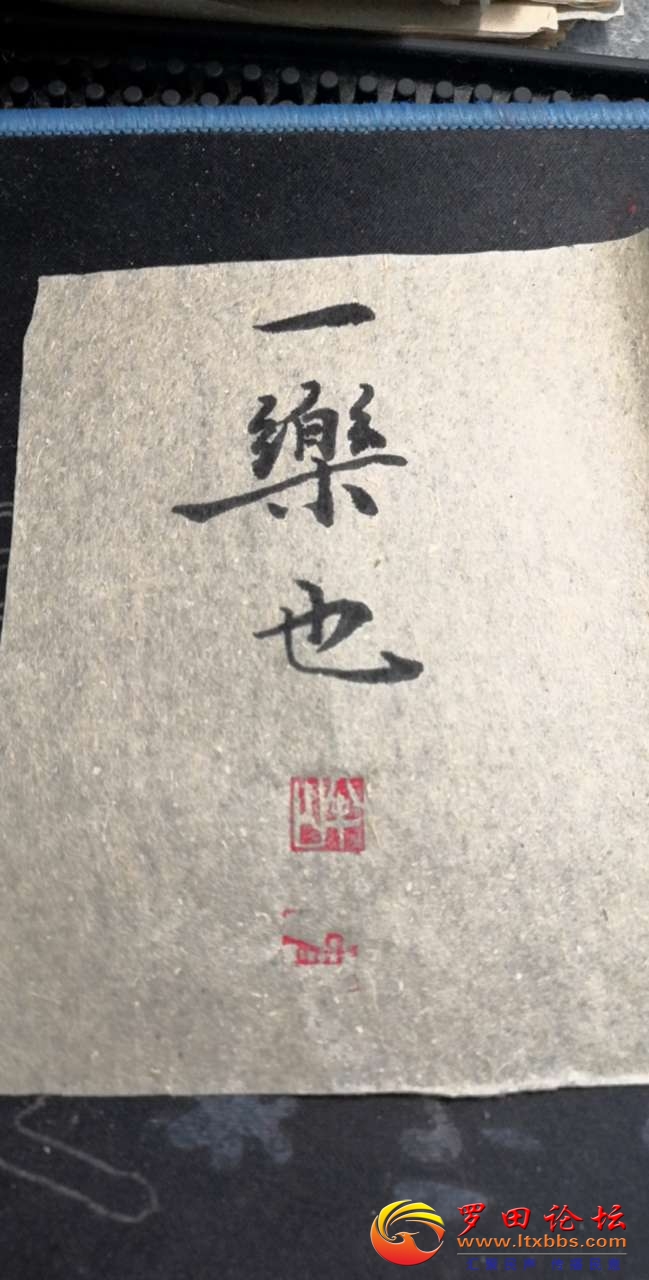 一
樂
也
罗田论坛
www.ltxbbs.com